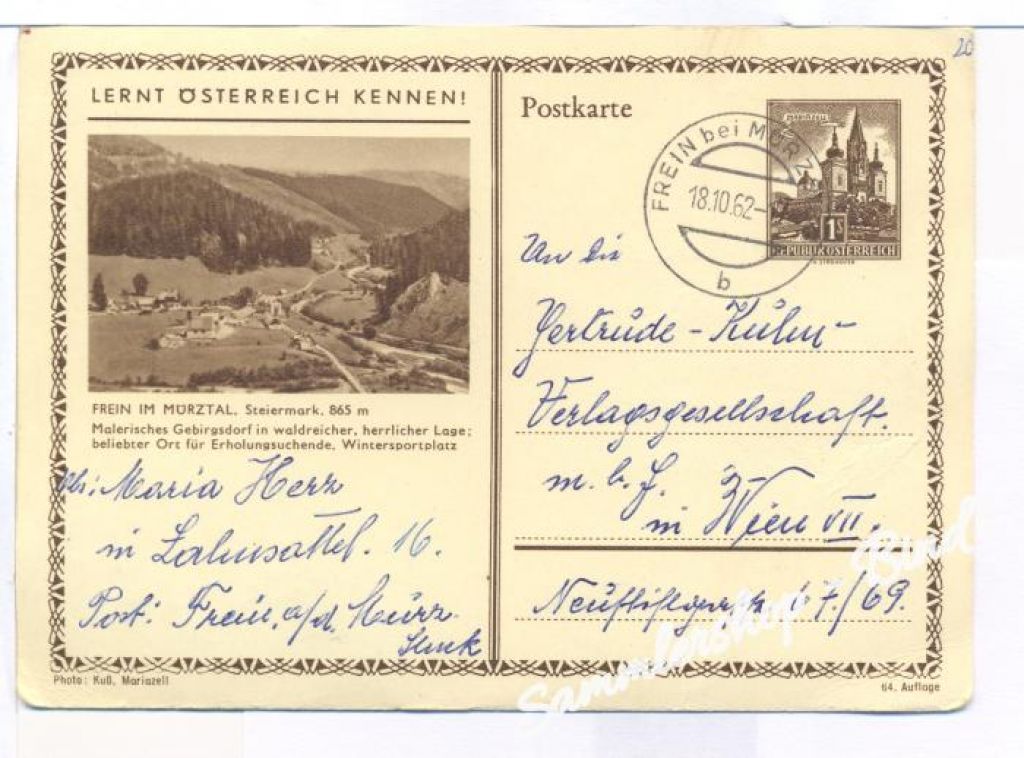 20
LERNT ÖSTERREICH KENNEN!
FREIN IM MÜRZTAL, Steiermark, 865 m
Malerisches Gebirgsdorf in waldreicher, herrlicher Lage;
beliebter Ort für Erholungsuchende, Wintersportplatz
Abs: Maria Herz
in Lahnsattel. 16.
Post: Frein, a/d. Mürz.
Photo: Kuß, Mariazell
Postkarte
FREIN bei MÜRZ
18.10.62-
b
MARIAZELL
1S
REPUBLIK ÖSTERREICH
An die
Gertrude-Kühn-
Verlagsgesellschaft.
m. b. H.
in Wien VII.
Neustiftgasse 67./69.
64. Auflage
Sammlershop - Bindl